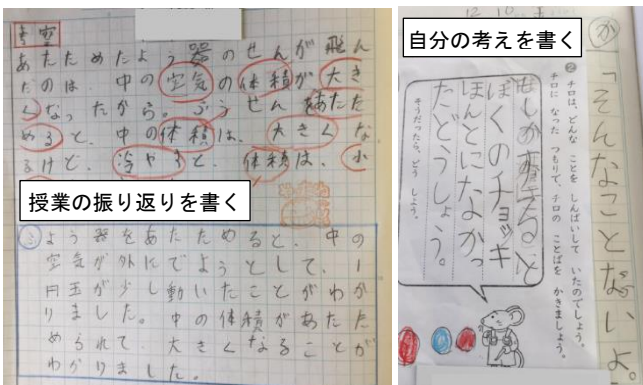 考察
あたためたよう器のせんが飛ん
だのは 中の空気の体積が大き
くなったから。ふうせんをあたた
めると、中の体積は、大きくな
るけど、冷やすと、体積は、小
授業の振り返りを書く
よう器をあたためると、中の
空気が外にでようとして、1
円玉が少し動いたことがわか
りました。中の体積があたた
められて大きくなることが
わかりました。
12 10
自分の考えを書く
か
「そんなことないよ。
❷ チロは、どんな ことを しんぱいして いたのでしょう。
チロに なった つもりで、チロの ことばを かきましょう。
そうだったら、どう しよう。
ぼくのチョッキ
ほんとになかっ
たどうしょう。